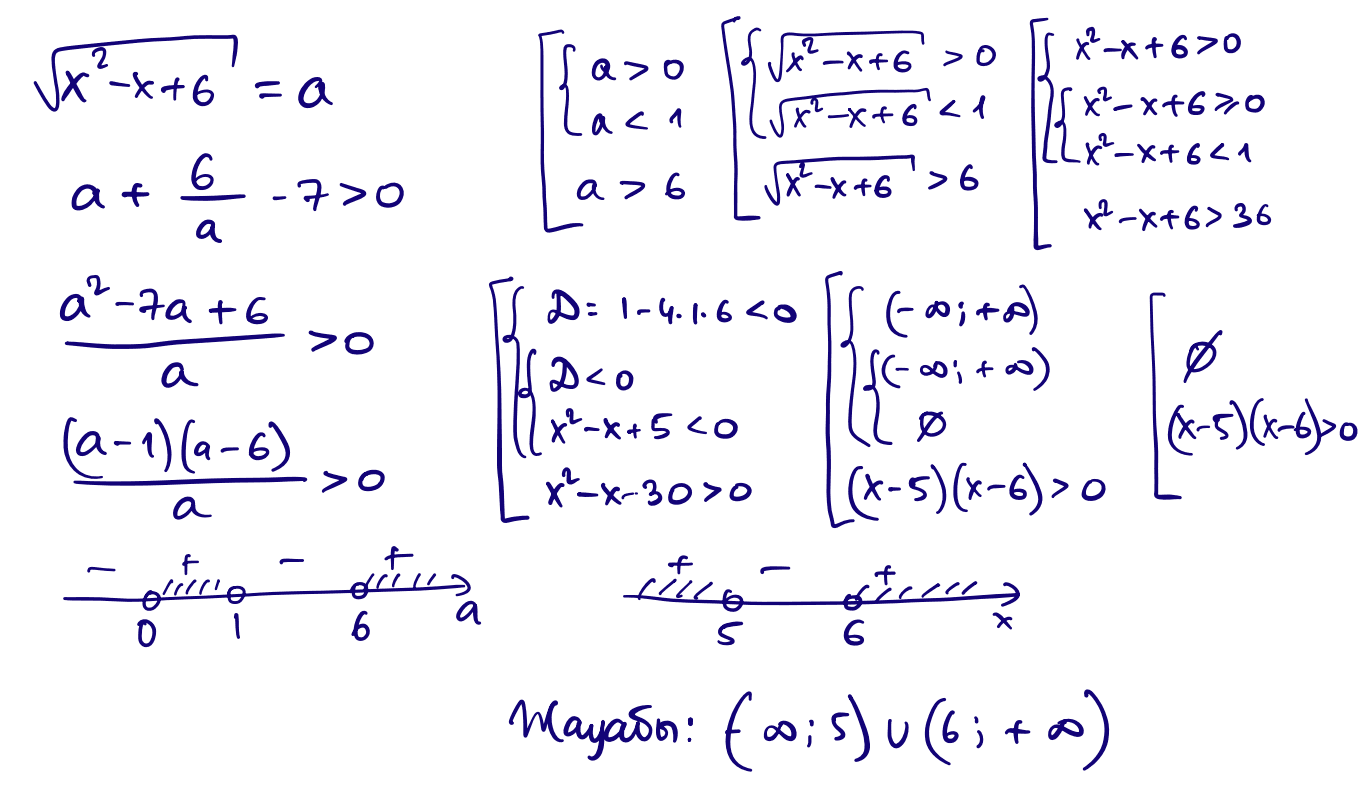 √(x²-x+6) = a
a + 6/a - 7 > 0
(a²-7a+6)/a > 0
((a-1)(a-6))/a > 0
- + - +
0 1 6 a
[ { a > 0
a < 1
a > 6
[ { √(x²-x+6) > 0
√(x²-x+6) < 1
√(x²-x+6) > 6
[ { x²-x+6 > 0
{ x²-x+6 ⩾ 0
x²-x+6 < 1
x²-x+6 > 36
[ { D = 1-4.1.6 < 0
{ D < 0
x²-x+5 < 0
x²-x-30 > 0
[ { (-∞; +∞)
{ (-∞; +∞)
∅
(x-5)(x-6) > 0
[ ∅
(x-5)(x-6) > 0
+ - +
5 6 x
Жауабы: (-∞; 5) ∪ (6; +∞)